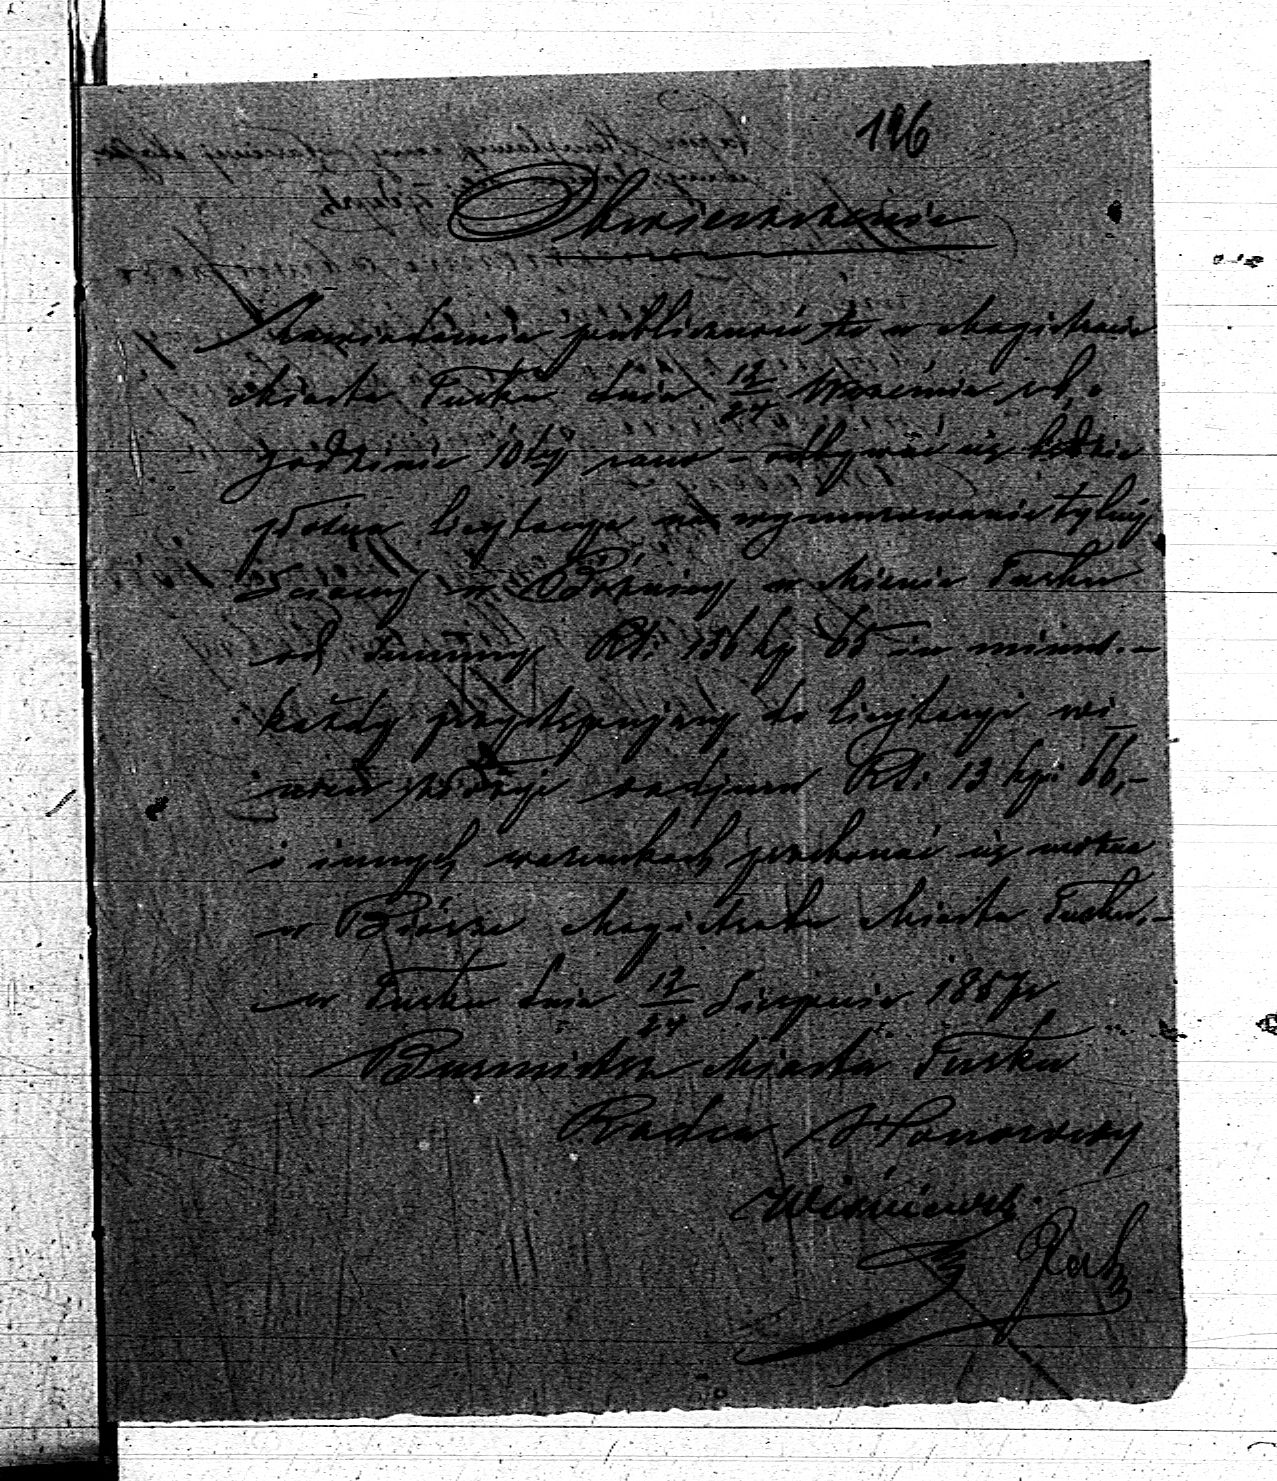 196
Obwieszczenie
Zawiadamia publiczność, że w Magistracie
Miasta Turku dnia 12/24 Września r. b. o
godzinie 10tej rano – odbywać się będzie
głośna licytacya na wymurowanie tylnéj
Ściany w Bóżnicy w Mieście Turku
od summy Rs. 136 kp 65 in minus. –
każdy przystępujący do licytacyi wi-
nien złożyć vadjum Rs. 13 kp. 66, –
o innych warunkach przekonać się można
w Biórze Magistratu Miasta Turku. –
w Turku dnia 12/24 Sierpnia 1857 r
Burmistrz Miasta Turku
Radca Honorowy